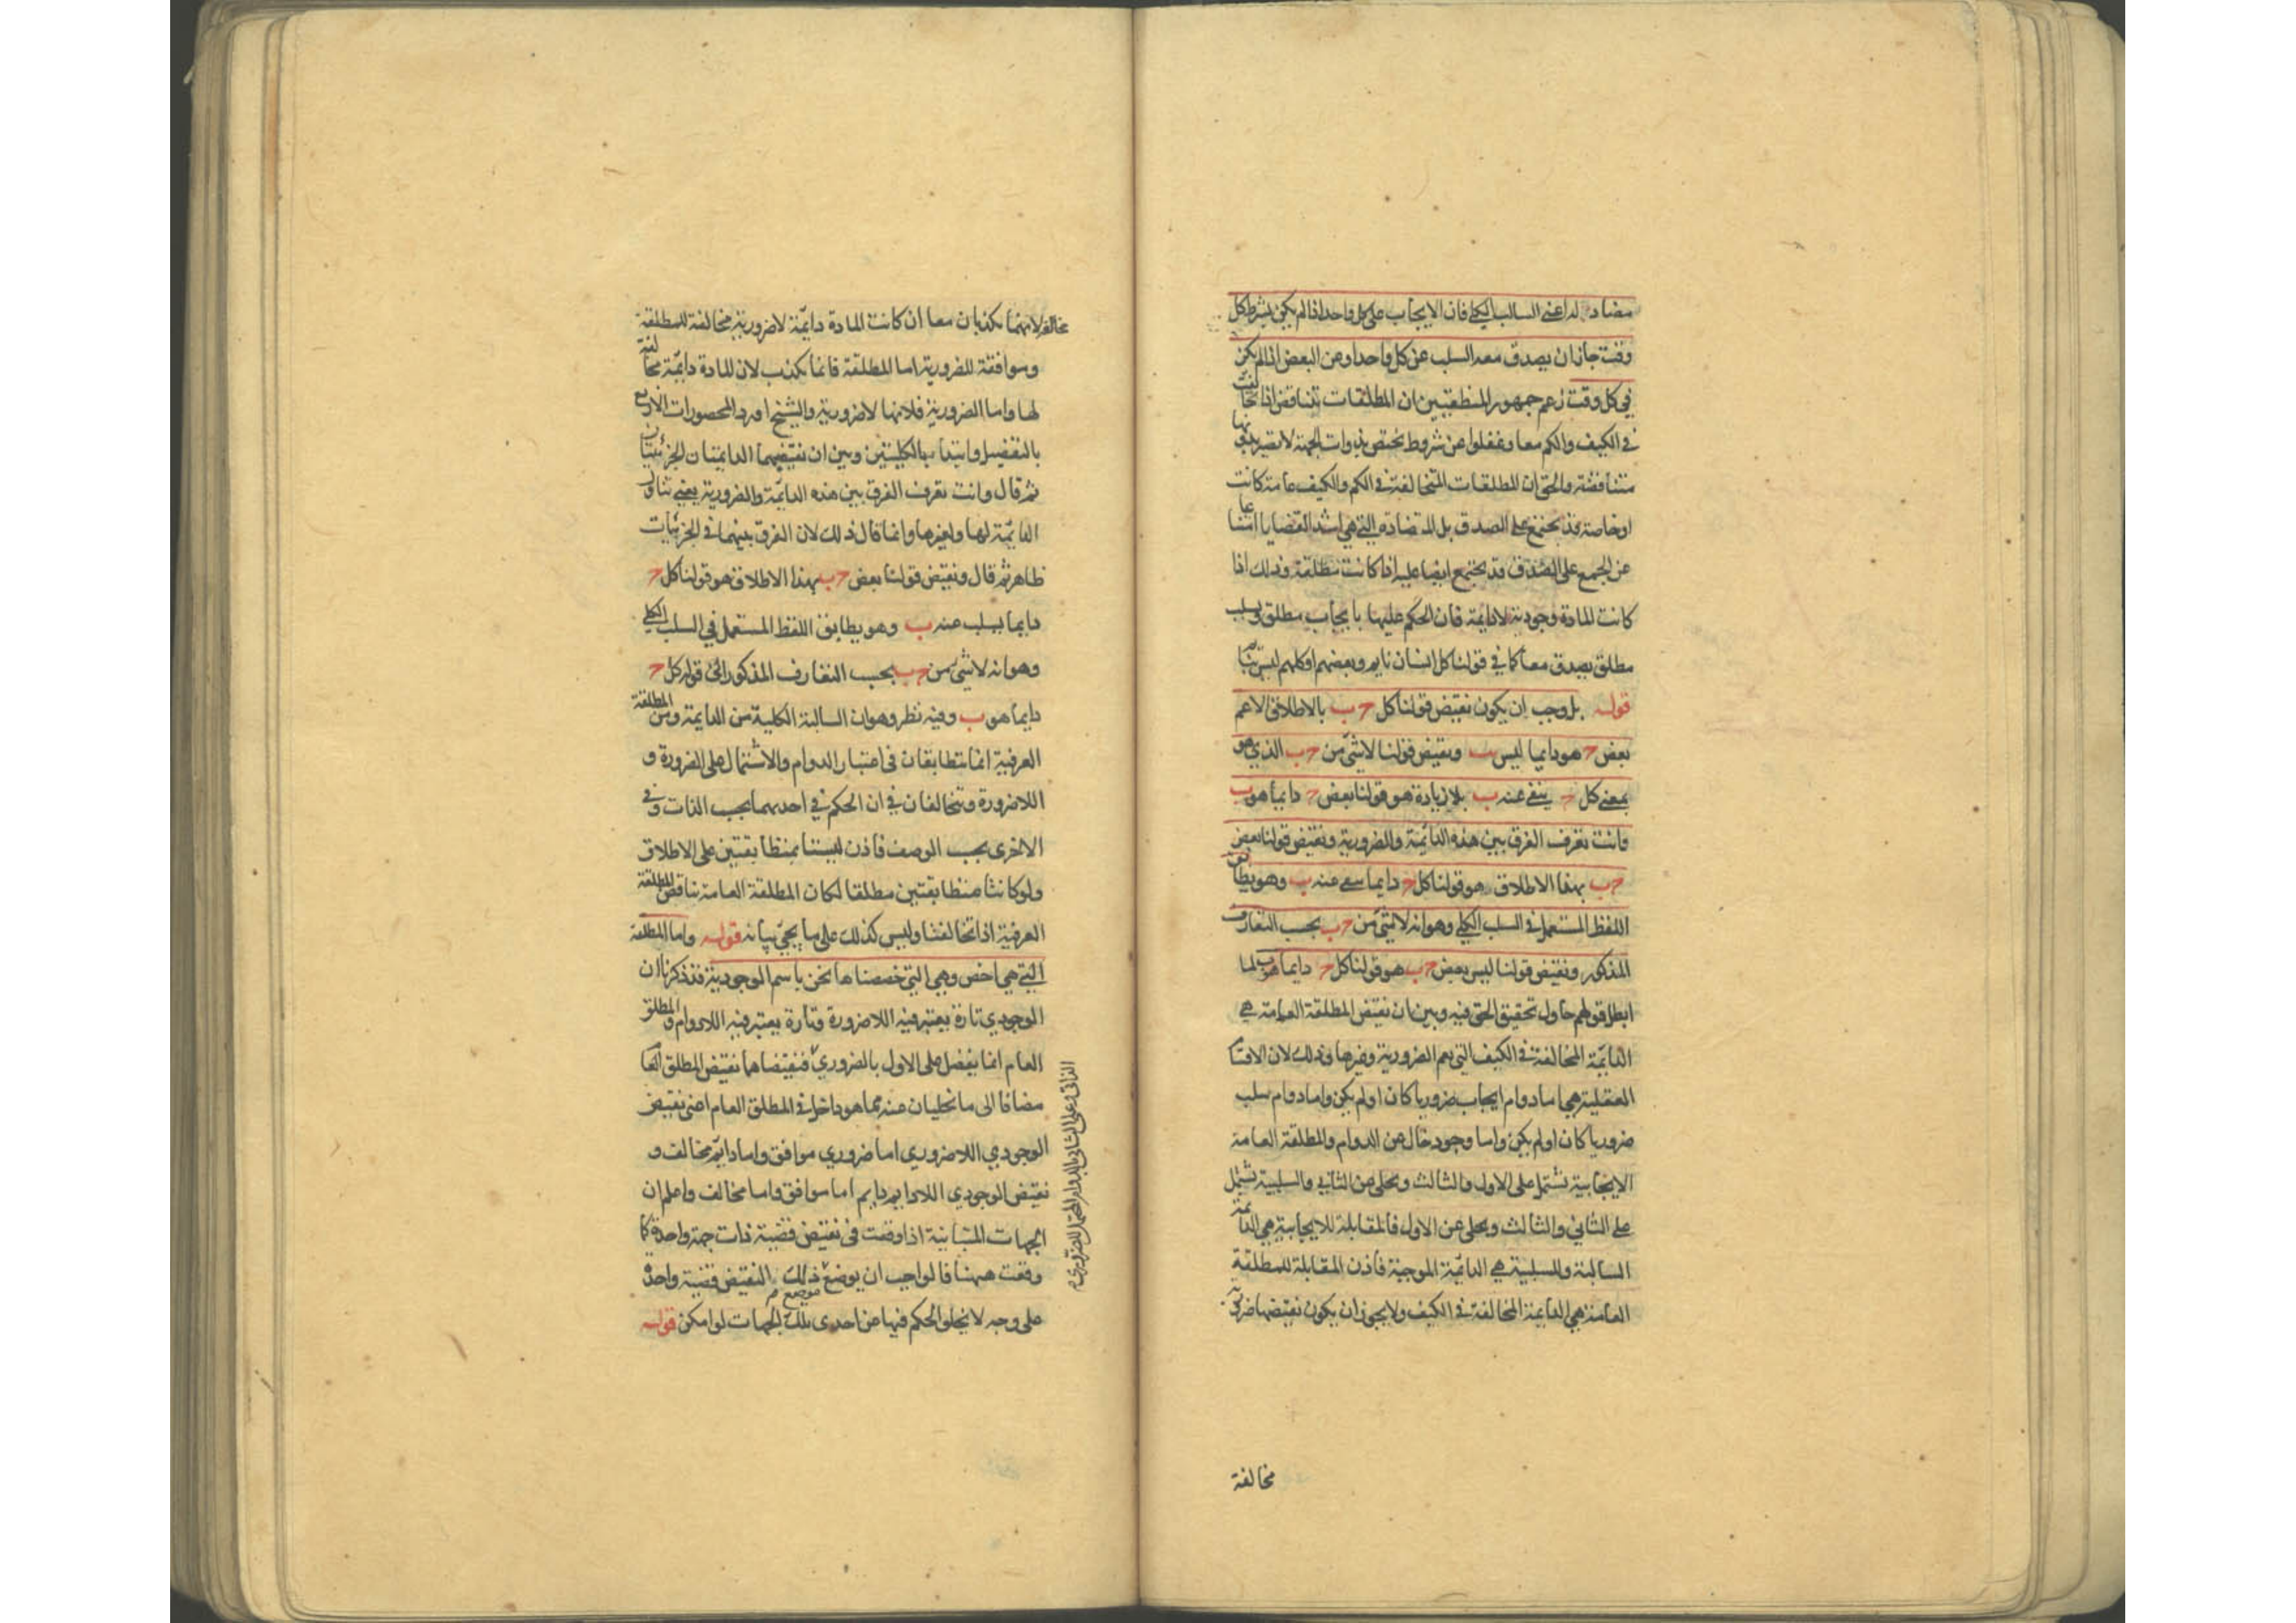 مضاد له اعنى السالب الكلى فان الايجاب على كل واحد اذا لم يكن بشرط كل
وقت جاز ان يصدق معه السلب عن كل واحد او عن البعض اذا لم يكن
فى كل وقت زعم جمهور المنطقيين ان المطلقات تتناقض اذا تخالفت
فى الكيف والكم معا وغفلوا عن شروط تختص بذوات الجهة لا تصير بدونها
متناقضة والحق ان المطلقات المتخالفة فى الكم والكيف عامة كانت
او خاصة قد تجتمع على الصدق بل المتضادة التى هى اشد القضايا امتناعا
عن الجمع على الصدق قد يجتمع ايضا عليه اذا كانت مطلقة وذلك اذا
كانت المادة وجودية لا دايمة فان الحكم عليها بايجاب مطلق وسلب
مطلق يصدق معا كما فى قولنا كل انسان نايم وبعضهم او كلهم ليس بنايم
قوله بل وجب ان يكون نقيض قولنا كل ج ب بالاطلاق الاعم
بعض ج هو دايما ليس ب ونقيض قولنا لا شئ من ج ب الذى هو
بمعنى كل ج ينفى عنه ب بلا زيادة هو قولنا بعض ج دايما هو ب
وانت تعرف الفرق بين هذه الدائمة والضرورية ونقيض قولنا بعض
ج ب بهذا الاطلاق هو قولنا كل ج دايما عنه ب وهو يطابق
اللفظ المستعمل فى السلب الكلى وهو انه لا شئ من ج ب بحسب التعارف
المذكور ونقيض قولنا ليس بعض ج ب هو قولنا كل ج دايما هو ب لما
ابطل قولهم حاول تحقيق الحق فيه وبين ان نقيض المطلقة العامة هى
الدائمة المخالفة فى الكيف التى يعم الضرورية وغيرها وذلك لان الاقسام
العقلية هى اما دوام ايجاب ضروريا كان او لم يكن واما دوام سلب
ضروريا كان او لم يكن واما وجود خال عن الدوام والمطلقة العامة
الايجابية تشتمل على الاول والثالث ويخلى عن الثانى والسلبية تشتمل
على الثانى والثالث ويخلى عن الاول فالمقابلة للايجابية هى الدائمة
السالبة وللسلبية هى الدائمة الموجبة فاذن المقابلة للمطلقة
العامة هى الدايمة المخالفة فى الكيف ولا يجوز ان يكون نقيضها ضرورية
مخالفة
مخالفة لانهما يكذبان معا ان كانت المادة دائمة لا ضرورية مخالفة للمطلقة
وموافقة للضرورية اما المطلقة فانما يكذب لان المادة دائمة مخالفة
لها واما الضرورية فلانها لا ضرورية والشيخ اورد المحصورات الاربع
بالتفصيل وابتدا بالكليتين وبين ان نقيضيهما الدايمتان الجزئيتان
ثم قال وانت تعرف الفرق بين هذه الدائمة والضرورية يعنى تناول
الدائمة لها ولغيرها وانما قال ذلك لان الفرق بينهما فى الجزئيات
ظاهر ثم قال ونقيض قولنا بعض ج ب بهذا الاطلاق هو قولنا كل ج
دايما يسلب عنه ب وهو يطابق اللفظ المستعمل فى السلب الكلى
وهو انه لا شئ من ج ب بحسب التعارف المذكور اى قوله كل ج
دايما هو ب وفيه نظر وهو ان السالبة الكلية من الدايمة ومن المطلقة
العرفية انما يتطابقان فى اعتبار الدوام والاشتمال على الضرورة و
اللاضرورة وتتخالفان فى ان الحكم فى احديهما بحسب الذات وفى
الاخرى بحسب الوصف فاذن ليستا بمتطابقتين على الاطلاق
ولو كانتا متطابقتين مطلقا لكان المطلقة العامة تناقض المطلقة
العرفية اذا تخالفتا وليس كذلك على ما يجئ بيانه قوله واما المطلقة
التى هى اخص وهى التى خصصناها نحن باسم الوجودية فقد ذكرنا ان
الوجودى تارة يعتبر فيه اللاضرورة وتارة يعتبر فيه اللادوام والمطلق
العام انما يفضل على الاول بالضرورى فنقيضاهما نقيض المطلق العام
مضافا الى ما تخليان عنه مما هو داخل فى المطلق العام اعنى نقيض
الوجودى اللاضرورى اما ضرورى موافق واما دائم مخالف و
نقيض الوجودى اللادايم دايم اما موافق واما مخالف واعلم ان
الجهات المتباينة اذا وقعت فى نقيض قضية ذات جهة واحدة كما
وقعت ههنا فالواجب ان يوضع موضع ذلك النقيض قضية واحدة
على وجه لا يخلو الحكم فيها عن احدى تلك الجهات لو امكن قوله
الذاتى وعلى الثانى بالدوام المحتمل للضرورى